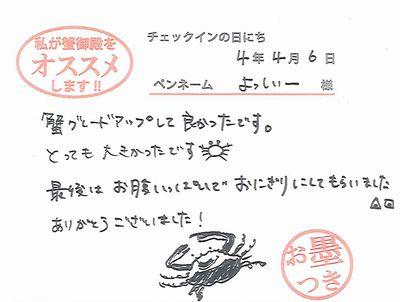 私が蟹御殿を
オススメ
します!!
チェックインの日にち
4年4月6日
ペンネーム よっしぃー 様
蟹グレードアップして良かったです。
とっても大きかったです
最後はお腹いっぱいでおにぎりにしてもらいました
ありがとうございました!
お墨
つき